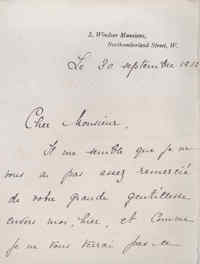 2, Windsor Mansions,
Northumberland Street, W.
Le 30 septembre 1912
Cher Monsieur,
Il me semble que je ne
vous ai pas assez remercié
de votre grande gentillesse
envers moi, hier, et comme
je ne vous verrai pas ce